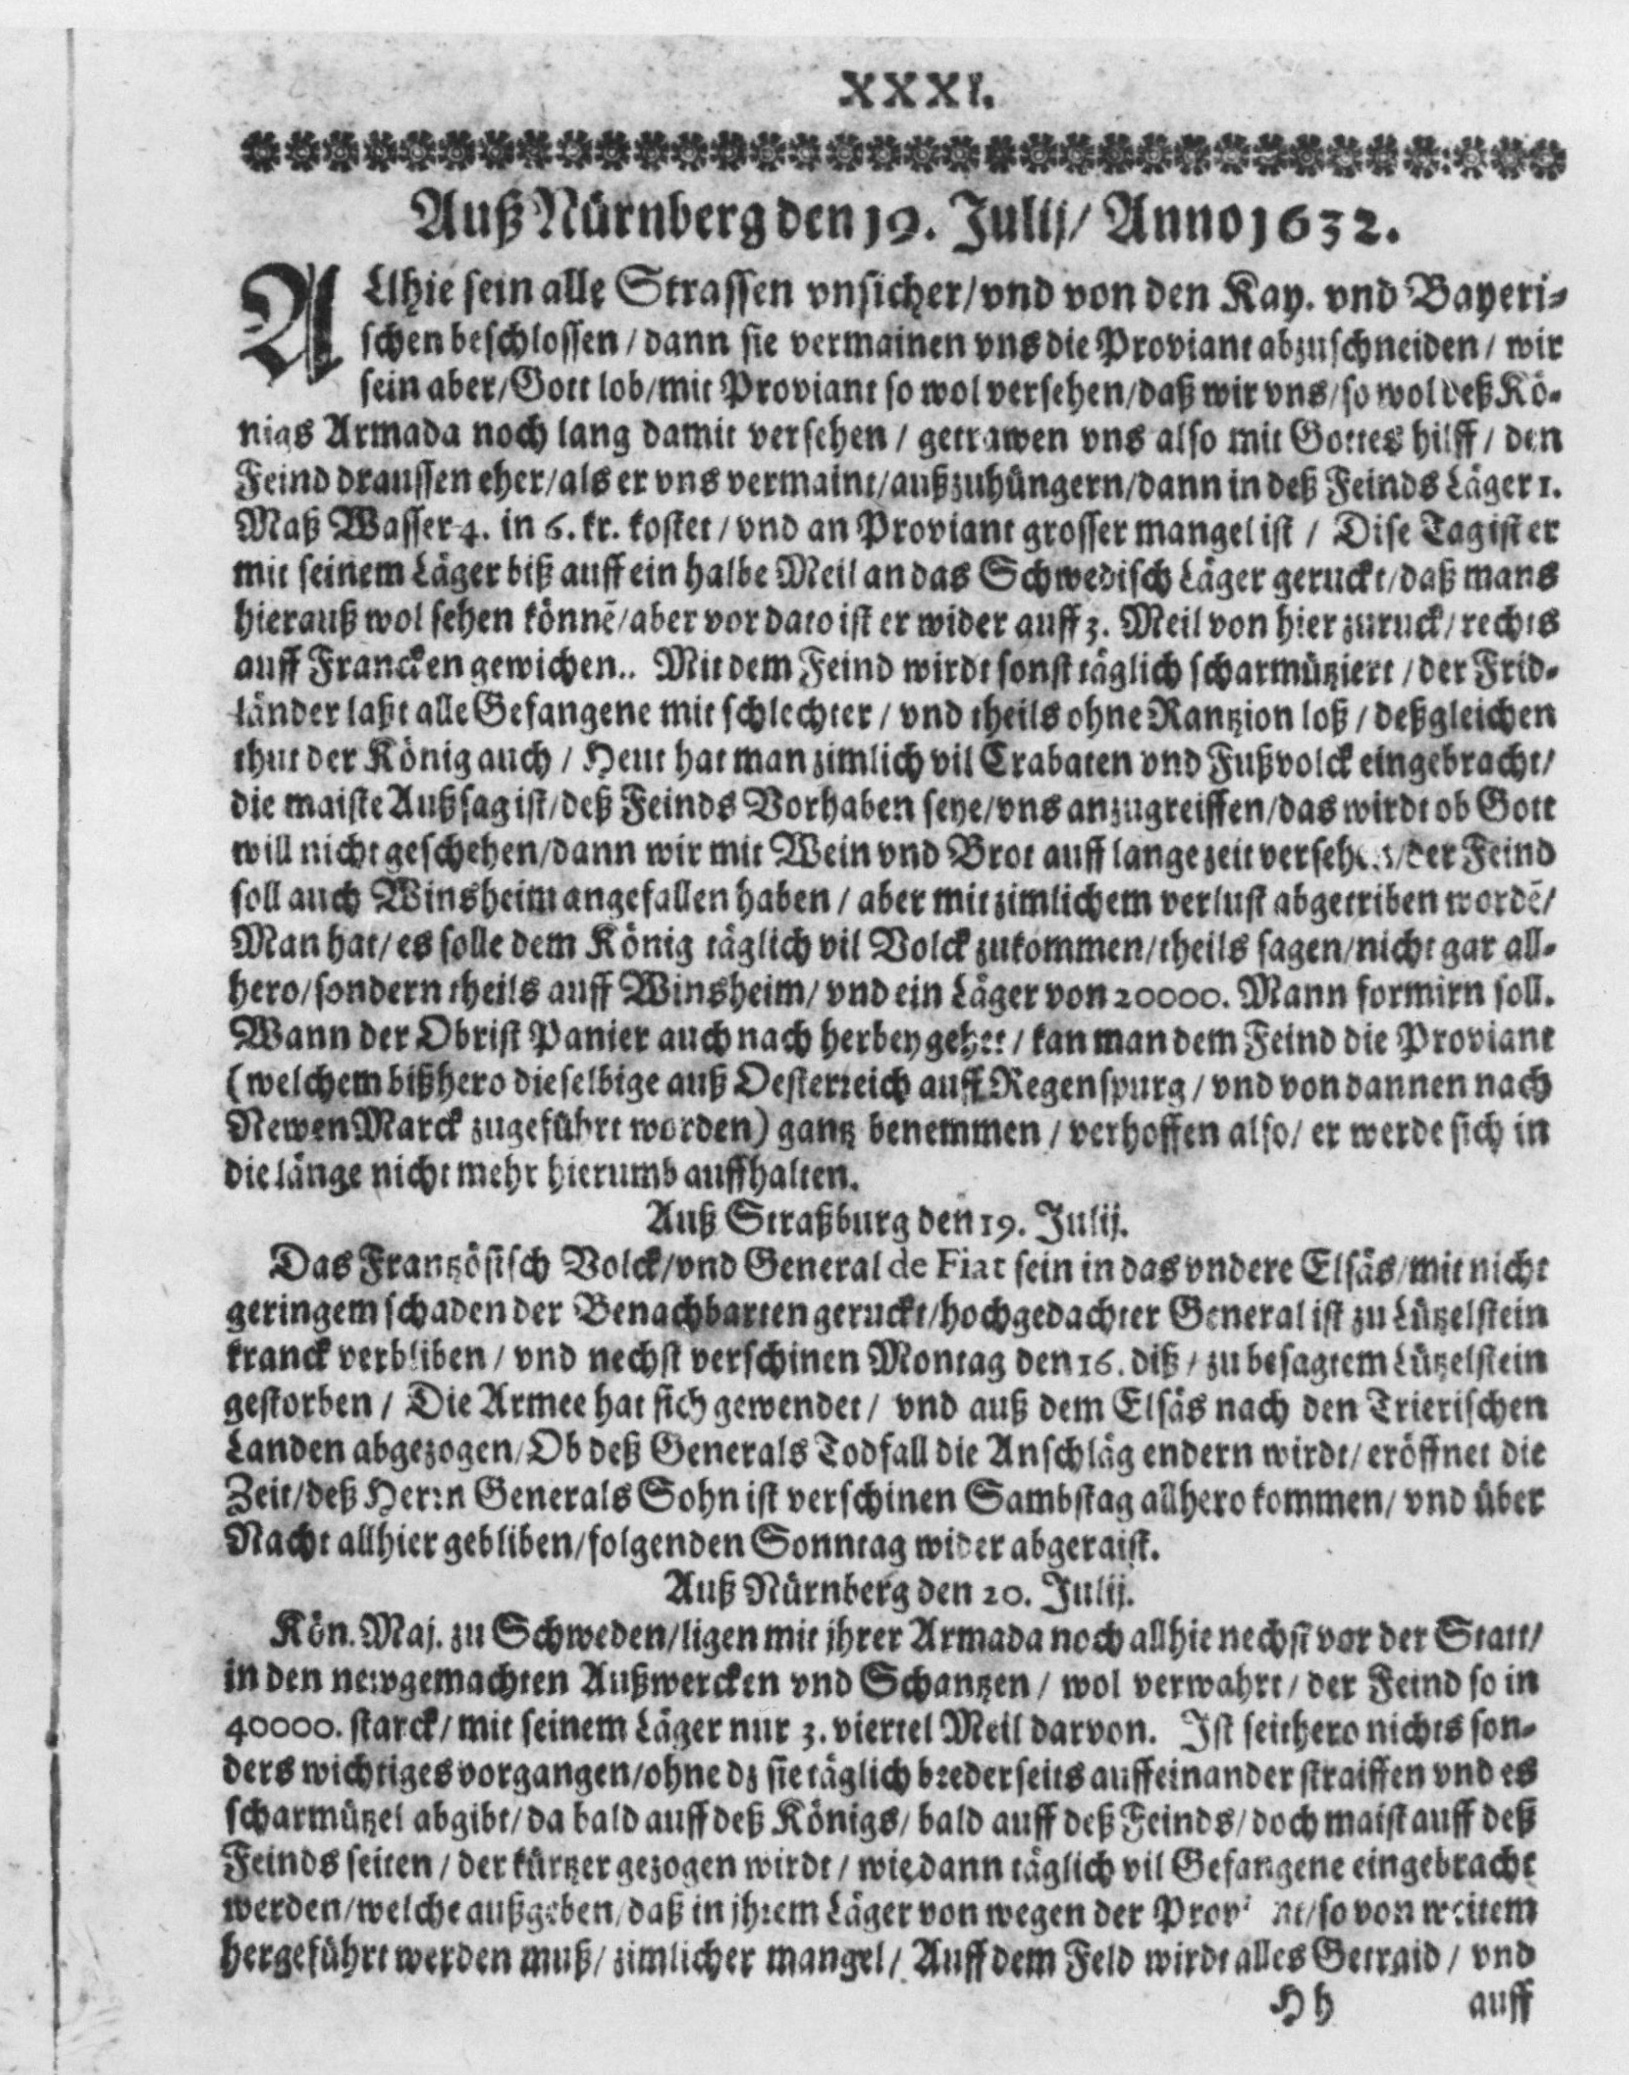 XXXI.
Auß Nürnberg den 19. Julij/ Anno 1632.
ALlhie sein alle Strassen vnsicher/vnd von den Kay. vnd Bayeri-
schen beschlossen/dann sie vermainen vns die Proviant abzuschneiden/ wir
sein aber/Gott lob/mit Proviant so wol versehen/daß wir vns/so wol deß Kö-
nigs Armada noch lang damit versehen/ getrawen vns also mit Gottes hilff/ den
Feind draussen eher/als er vns vermaint/außzuhüngern/dann in deß Feinds Läger 1.
Maß Wasser 4. in 6. kr. kostet/vnd an Proviant grosser mangel ist/ Dise Tag ist er
mit seinem Läger biß auff ein halbe Meil an das Schwedisch Läger geruckt/daß mans
hierauß wol sehen könnē/aber vor dato ist er wider auff 3. Meil von hier zuruck/rechts
auff Francken gewichen.. Mit dem Feind wirdt sonst täglich scharmütziert/der Frid-
länder laßt alle Gefangene mit schlechter/ vnd theils ohne Rantzion loß/deßgleichen
thut der König auch/ Heut hat man zimlich vil Crabaten vnd Fußvolck eingebracht/
die maiste Außsag ist/deß Feinds Vorhaben seye/vns anzugreiffen/das wirdt ob Gott
will nicht geschehen/dann wir mit Wein vnd Brot auff lange zeit versehen/der Feind
soll auch Winsheim angefallen haben/ aber mit zimlichem verlust abgetriben wordē/
Man hat/es solle dem König täglich vil Volck zukommen/theils sagen/nicht gar all-
hero/sondern theils auff Winsheim/vnd ein Läger von 20000. Mann formirn soll.
Wann der Obrist Panier auch nach herbey gehet/kan man dem Feind die Proviant
(welchem bißhero dieselbige auß Oesterreich auff Regenspurg/vnd von dannen nach
Newen Marck zugeführt worden) gantz benemmen/verhoffen also/ er werde sich in
die länge nicht mehr hierumb auffhalten.
Auß Straßburg den 19. Julij.
Das Frantzösisch Volck/vnd General de Fiat sein in das vndere Elsäs/mit nicht
geringem schaden der Benachbarten geruckt/hochgedachter General ist zu Lützelstein
kranck verbliben/ vnd nechst verschinen Montag den 16. diß/zu besagtem Lützelstein
gestorben/ Die Armee hat sich gewendet/ vnd auß dem Elsäs nach den Trierischen
Landen abgezogen/Ob deß Generals Todfall die Anschläg endern wirdt/eröffnet die
Zeit/deß Herrn Generals Sohn ist verschinen Sambstag allhero kommen/ vnd über
Nacht allhier gebliben/folgenden Sonntag wider abgeraist.
Auß Nürnberg den 20. Julij.
Kön. Maj. zu Schweden/ligen mit jhrer Armada noch allhie nechst vor der Statt/
in den newgemachten Außwercken vnd Schantzen/ wol verwahrt/der Feind so in
40000. starck/mit seinem Läger nur 3. viertel Meil darvon. Ist seithero nichts son-
ders wichtiges vorgangen/ohne dz sie täglich beederseits auff einander straiffen vnd es
scharmützel abgibt/da bald auff deß Königs/bald auff deß Feinds/doch maist auff deß
Feinds seiten/der kürtzer gezogen wirdt/wie dann täglich vil Gefangene eingebracht
werden/welche außgeben/daß in jhrem Läger von wegen der Proviant/so von weitem
hergeführt werden muß/zimlicher mangel/ Auff dem Feld wirdt alles Getraid/ vnd
Hh auff